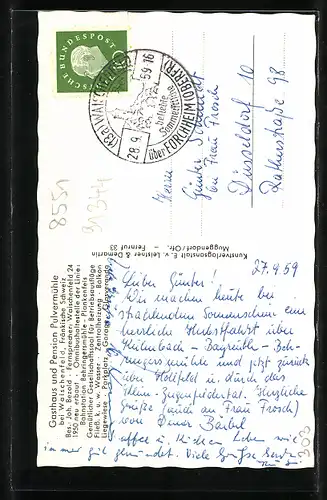 DEUTSCHE BUNDESPOST
(13a) WAISCHENFELD
28.9.59-16
beliebte
Sommerfrische
über FORCHHEIM (OBERFR)
8551
Herrn
Günter
bei Frau Frosch
Düsseldorf 10
Rathusstraße 98
Kunstverlagsanstalt E. v. Leistner & Demartin
Muggendorf/Ofr. - Fernruf 33
Gasthaus und Pension Pulvermühle
bei Waischenfeld, Fränkische Schweiz
Bes.: Joh. Bezold - Fernsprecher: Waischenfeld 24
1950 neu erbaut - Omnibushaltestelle der Linie:
Bahnstation Behringersmühle - Plankenfels
Gemütlicher Gesellschaftssaal für Betriebsausflüge
Fließ. k. u. w. Wasser - Zentralheizung - Balkon
Liegewiese - Parkplatz - Garage
27.9.59
Lieber Günter!
Wir machen heute bei
strahlendem Sonnenschein eine
herrliche Herbstfahrt über
Kulmbach - Bayreuth - Beh-
ringersmühle und jetzt zurück
über Hollfeld u. durch das
Klein-Ziegenfeldertal. Herzliche
Grüße (auch an Frau Frosch)
von Deiner Bärbel
immer gut Viele Grüße